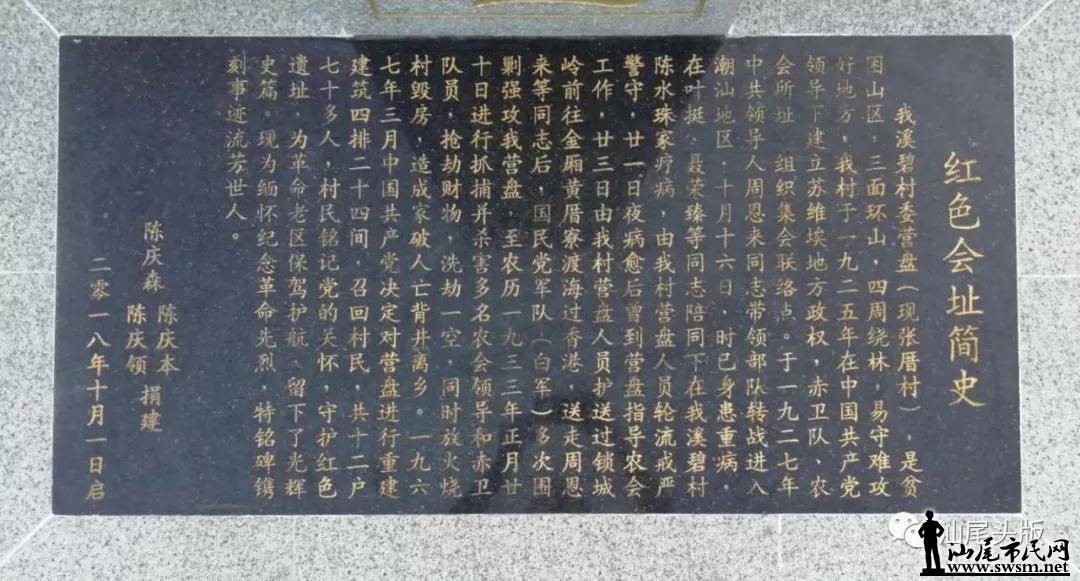 红色会址简史
我溪碧村委营盘（现张厝村），是贫
困山区，三面环山，四周绕林，易守难攻
好地方，我村于一九二五年在中国共产党
领导下建立苏维埃地方政权，赤卫队、农
会所址，组织集会联络点。于一九二七年
中共领导人周恩来同志带领部队转战进入
潮汕地区，十月十六日，时已身患重病，
在叶挺、聂荣臻等同志陪同下在我溪碧村
陈水珠家疗病，由我村营盘人员轮流戒严
警守，廿一日夜病愈后曾到营盘指导农会
工作，廿三日由我村营盘人员护送过锁城
岭前往金厢黄厝寮渡海过香港，送走周恩
来等同志后，国民党军队（白军）多次围
剿强攻我营盘，至农历一九三三年正月廿
十日进行抓捕并杀害多名农会领导和赤卫
队员，抢劫财物，洗劫一空，同时放火烧
村毁房，造成家破人亡背井离乡。一九六
七年三月中国共产党决定对营盘进行重建
建筑四排二十四间，召回村民，共十二户
七十多人，村民铭记党的关怀，守护红色
遗址，为革命老区保驾护航、留下了光辉
史篇。现为缅怀纪念革命先烈，特铭碑镌
刻事迹流芳世人。
陈庆本
陈庆森 捐建
陈庆领
二零一八年十月一日启
汕尾头版
汕尾市民网
www.swsm.net